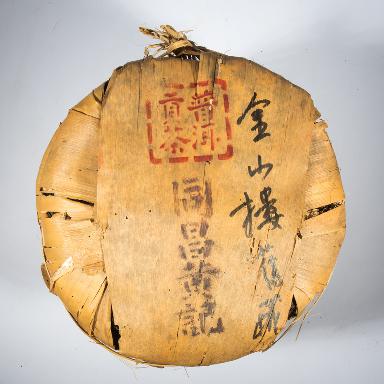 金山樓舊藏
普洱
貢茶
同昌黃記